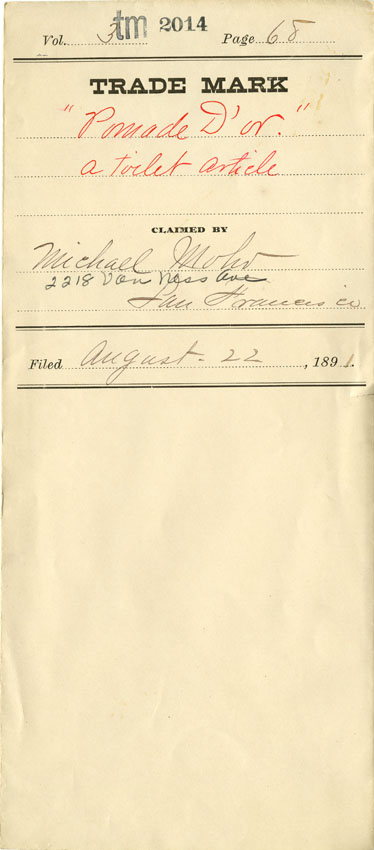 Vol. 3 tm 2014 Page 68
TRADE MARK
"Pomade D'or."
a toilet article
CLAIMED BY
Michael Mohr
2218 Van Ness Ave
San Francisco
Filed August - 22, 1891.